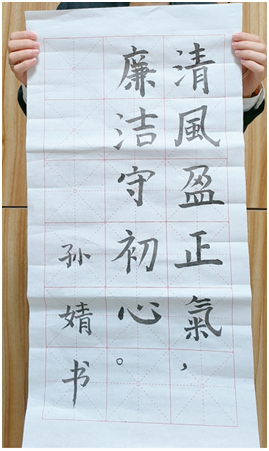 清風盈正氣，
廉洁守初心。
孙婧书